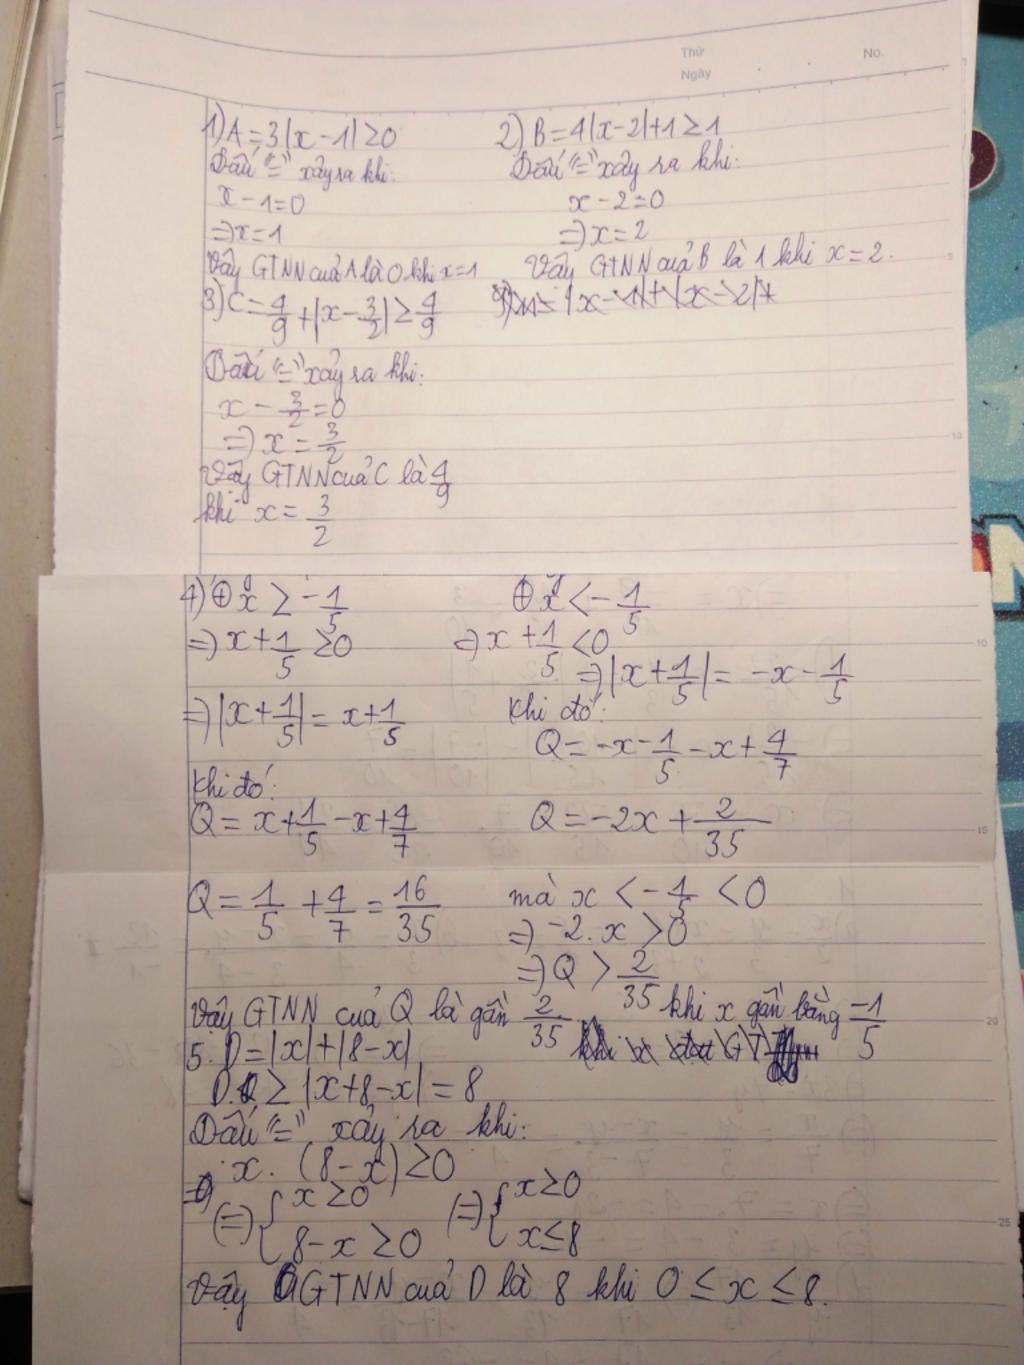 Thứ
Ngày
No.
1) A = 3|x - 1| ≥ 0
Dấu "=" xảy ra khi:
x - 1 = 0
=> x = 1
Vậy GTNN của A là 0 khi x = 1
2) B = 4|x - 2| + 1 ≥ 1
Dấu "=" xảy ra khi:
x - 2 = 0
=> x = 2
Vậy GTNN của B là 1 khi x = 2.
3) C = 4/9 + |x - 3/2| ≥ 4/9
Dấu "=" xảy ra khi:
x - 3/2 = 0
=> x = 3/2
Vậy GTNN của C là 4/9
khi x = 3/2
4) ⊕ x ≥ -1/5
=> x + 1/5 ≥ 0
=> |x + 1/5| = x + 1/5
Khi đó:
Q = x + 1/5 - x + 4/7
Q = 1/5 + 4/7 = 16/35
⊕ x < -1/5
=> x + 1/5 < 0
=> |x + 1/5| = -x - 1/5
Khi đó:
Q = -x - 1/5 - x + 4/7
Q = -2x + 2/35
mà x < -1/5 < 0
=> -2.x > 0
=> Q > 2/35
Vậy GTNN của Q là gần 2/35 khi x gần bằng -1/5
5. D = |x| + |8 - x|
D ≥ |x + 8 - x| = 8
Dấu "=" xảy ra khi:
x. (8 - x) ≥ 0
(=) { x ≥ 0 (=) { x ≥ 0
8 - x ≥ 0 x ≤ 8
Vậy GTNN của D là 8 khi 0 ≤ x ≤ 8.
5
10
10
15
20
25